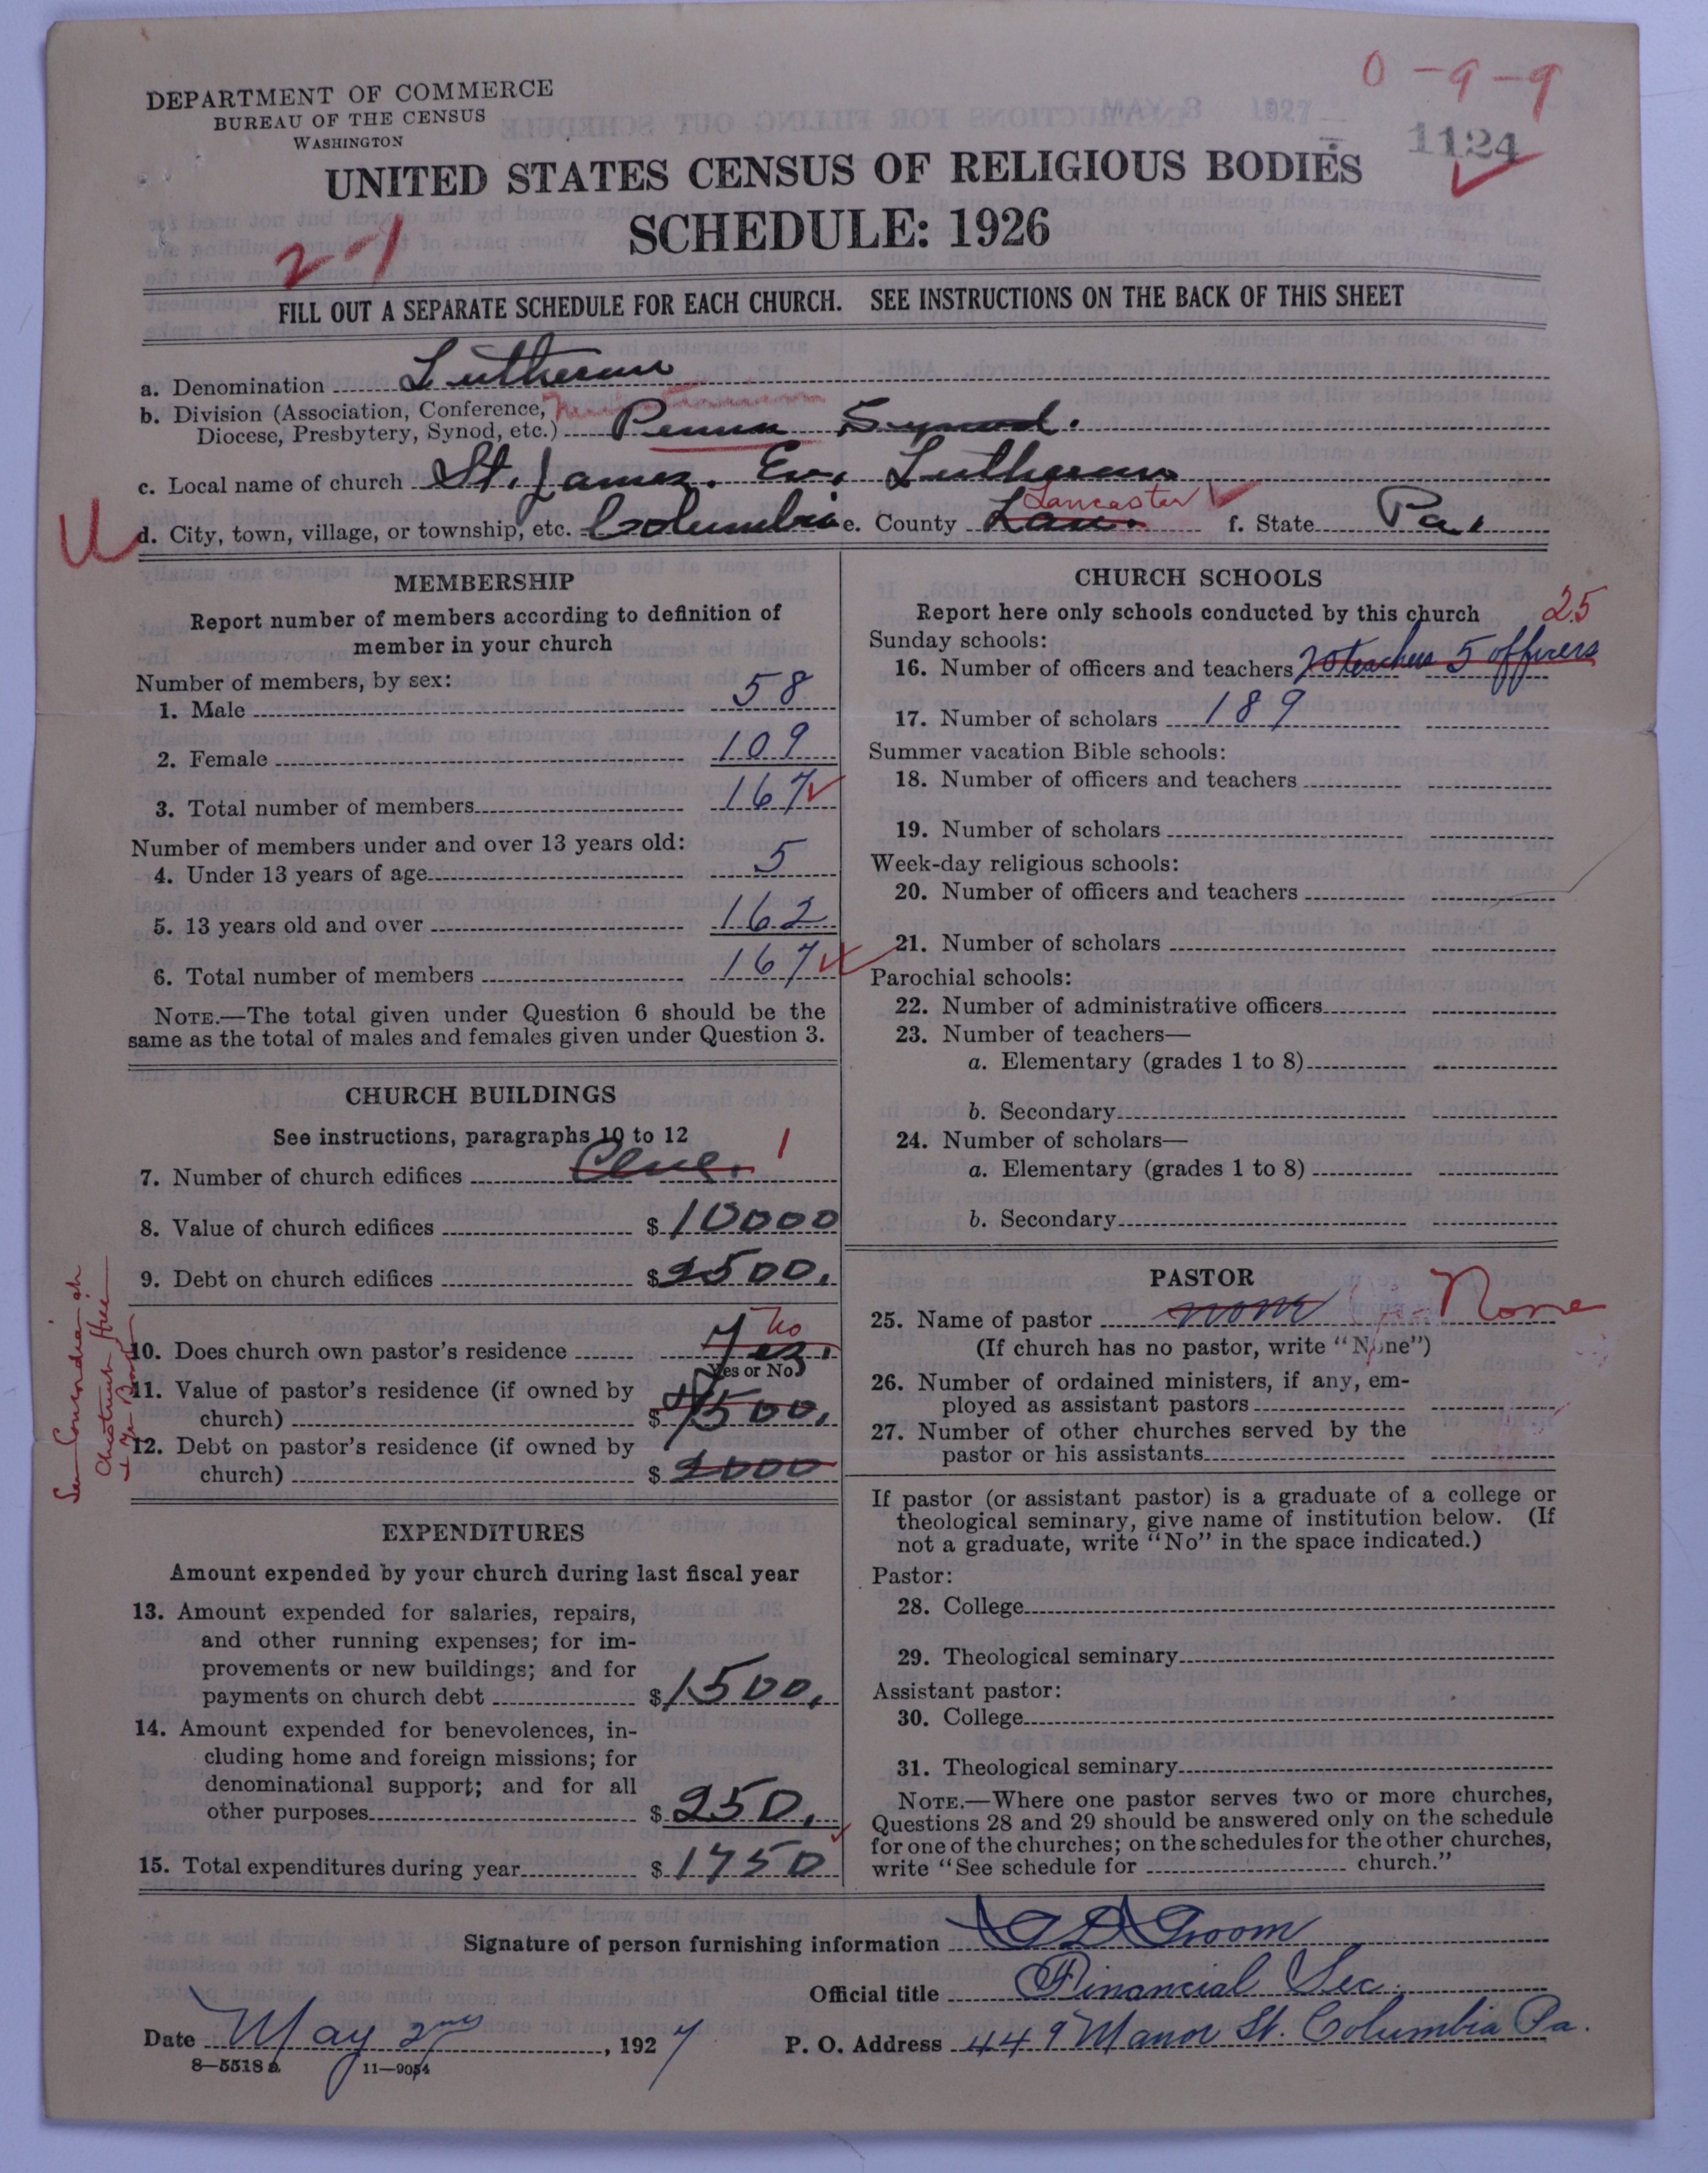 0-9-9
DEPARTMENT OF COMMERCE
BUREAU OF THE CENSUS
WASHINGTON
MAY 3 1927
1124
UNITED STATES CENSUS OF RELIGIOUS BODIES
SCHEDULE: 1926
2-1
FILL OUT A SEPARATE SCHEDULE FOR EACH CHURCH. SEE INSTRUCTIONS ON THE BACK OF THIS SHEET
a. Denomination Lutheran
b. Division (Association, Conference,
Diocese, Presbytery, Synod, etc.) Penna Synod.
c. Local name of church St. James. Ev. Lutheran
U d. City, town, village, or township, etc. Columbia e. County Lan. Lancaster f. State Pa.
MEMBERSHIP
Report number of members according to definition of
member in your church
Number of members, by sex:
1. Male 58
2. Female 109
3. Total number of members 167
Number of members under and over 13 years old:
4. Under 13 years of age 5
5. 13 years old and over 162
6. Total number of members 167
NOTE.—The total given under Question 6 should be the
same as the total of males and females given under Question 3.
CHURCH BUILDINGS
See instructions, paragraphs 10 to 12
7. Number of church edifices One. 1
8. Value of church edifices $10000
9. Debt on church edifices $2500.
10. Does church own pastor's residence Yes. No
Yes or No
11. Value of pastor's residence (if owned by
church) $4500.
12. Debt on pastor's residence (if owned by
church) $2000
EXPENDITURES
Amount expended by your church during last fiscal year
13. Amount expended for salaries, repairs,
and other running expenses; for im-
provements or new buildings; and for
payments on church debt $1500.
14. Amount expended for benevolences, in-
cluding home and foreign missions; for
denominational support; and for all
other purposes $250.
15. Total expenditures during year $1750
CHURCH SCHOOLS
Report here only schools conducted by this church 25
Sunday schools:
16. Number of officers and teachers 20 teachers 5 officers
17. Number of scholars 189
Summer vacation Bible schools:
18. Number of officers and teachers
19. Number of scholars
Week-day religious schools:
20. Number of officers and teachers
21. Number of scholars
Parochial schools:
22. Number of administrative officers
23. Number of teachers—
a. Elementary (grades 1 to 8)
b. Secondary
24. Number of scholars—
a. Elementary (grades 1 to 8)
b. Secondary
PASTOR
25. Name of pastor none None
(If church has no pastor, write "None")
26. Number of ordained ministers, if any, em-
ployed as assistant pastors
27. Number of other churches served by the
pastor or his assistants
If pastor (or assistant pastor) is a graduate of a college or
theological seminary, give name of institution below. (If
not a graduate, write "No" in the space indicated.)
Pastor:
28. College
29. Theological seminary
Assistant pastor:
30. College
31. Theological seminary
NOTE.—Where one pastor serves two or more churches,
Questions 28 and 29 should be answered only on the schedule
for one of the churches; on the schedules for the other churches,
write "See schedule for church."
Signature of person furnishing information Groom
Official title Financial Sec.
Date May 2nd, 1927 P. O. Address 449 Manor St. Columbia Pa.
8—5518a 11—9054